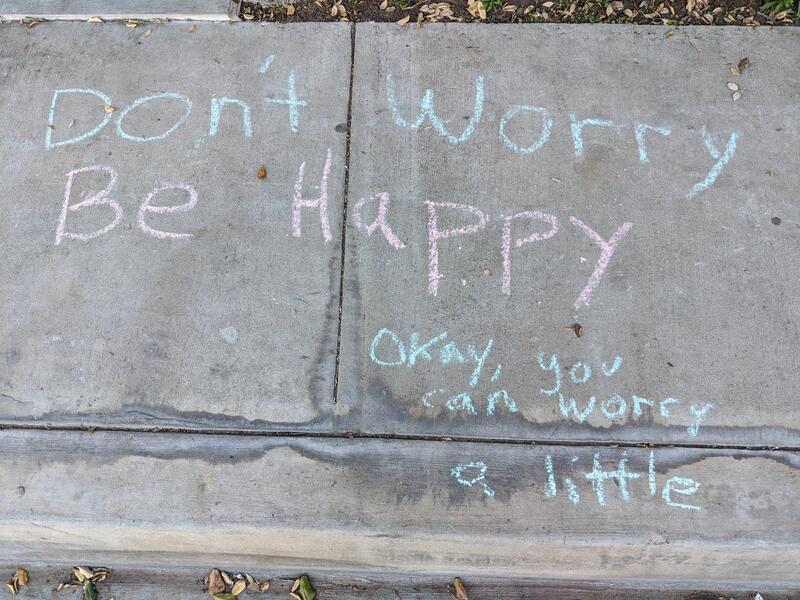 Don't Worry
Be Happy
Okay, you
can worry
a little